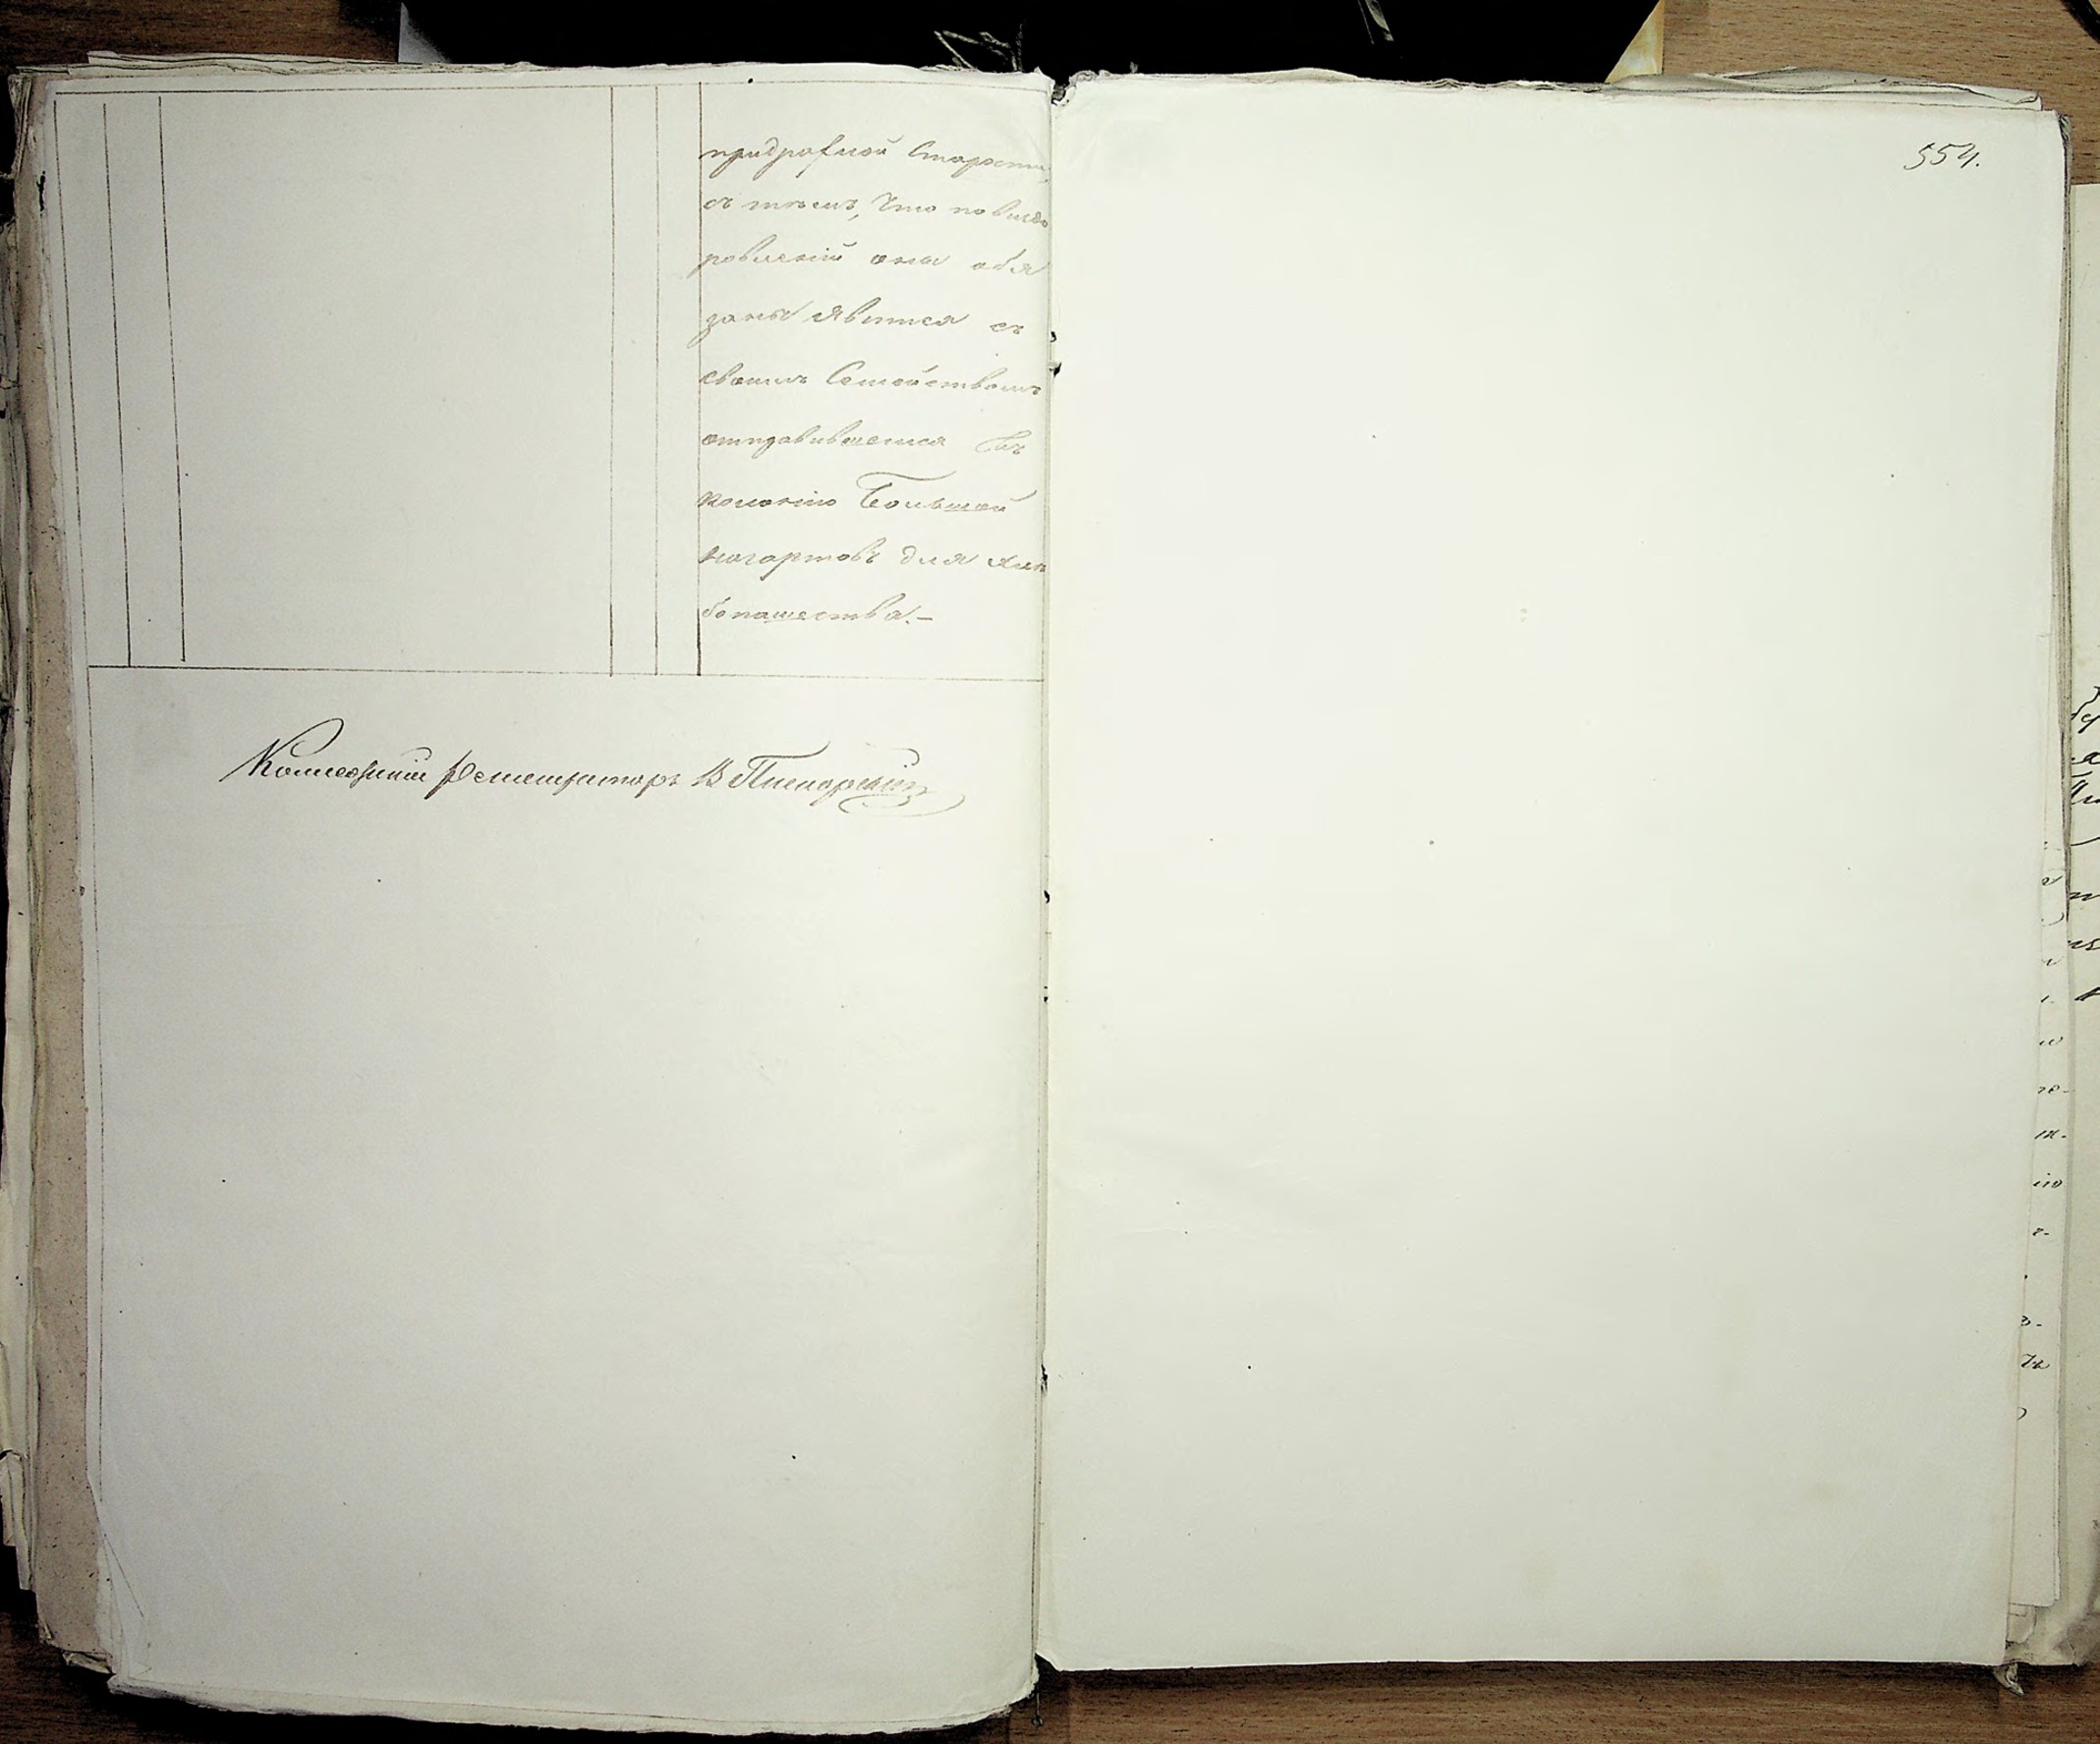 при драхлой Старости,
съ тѣмъ, Что по выздо
ровленіи они обя
заны явится съ
своимъ Семействомъ
отправившемся въ
колонію Большой
нагартовъ для хлѣ
бопашества.—
Коллежскій Регистраторъ В
554.